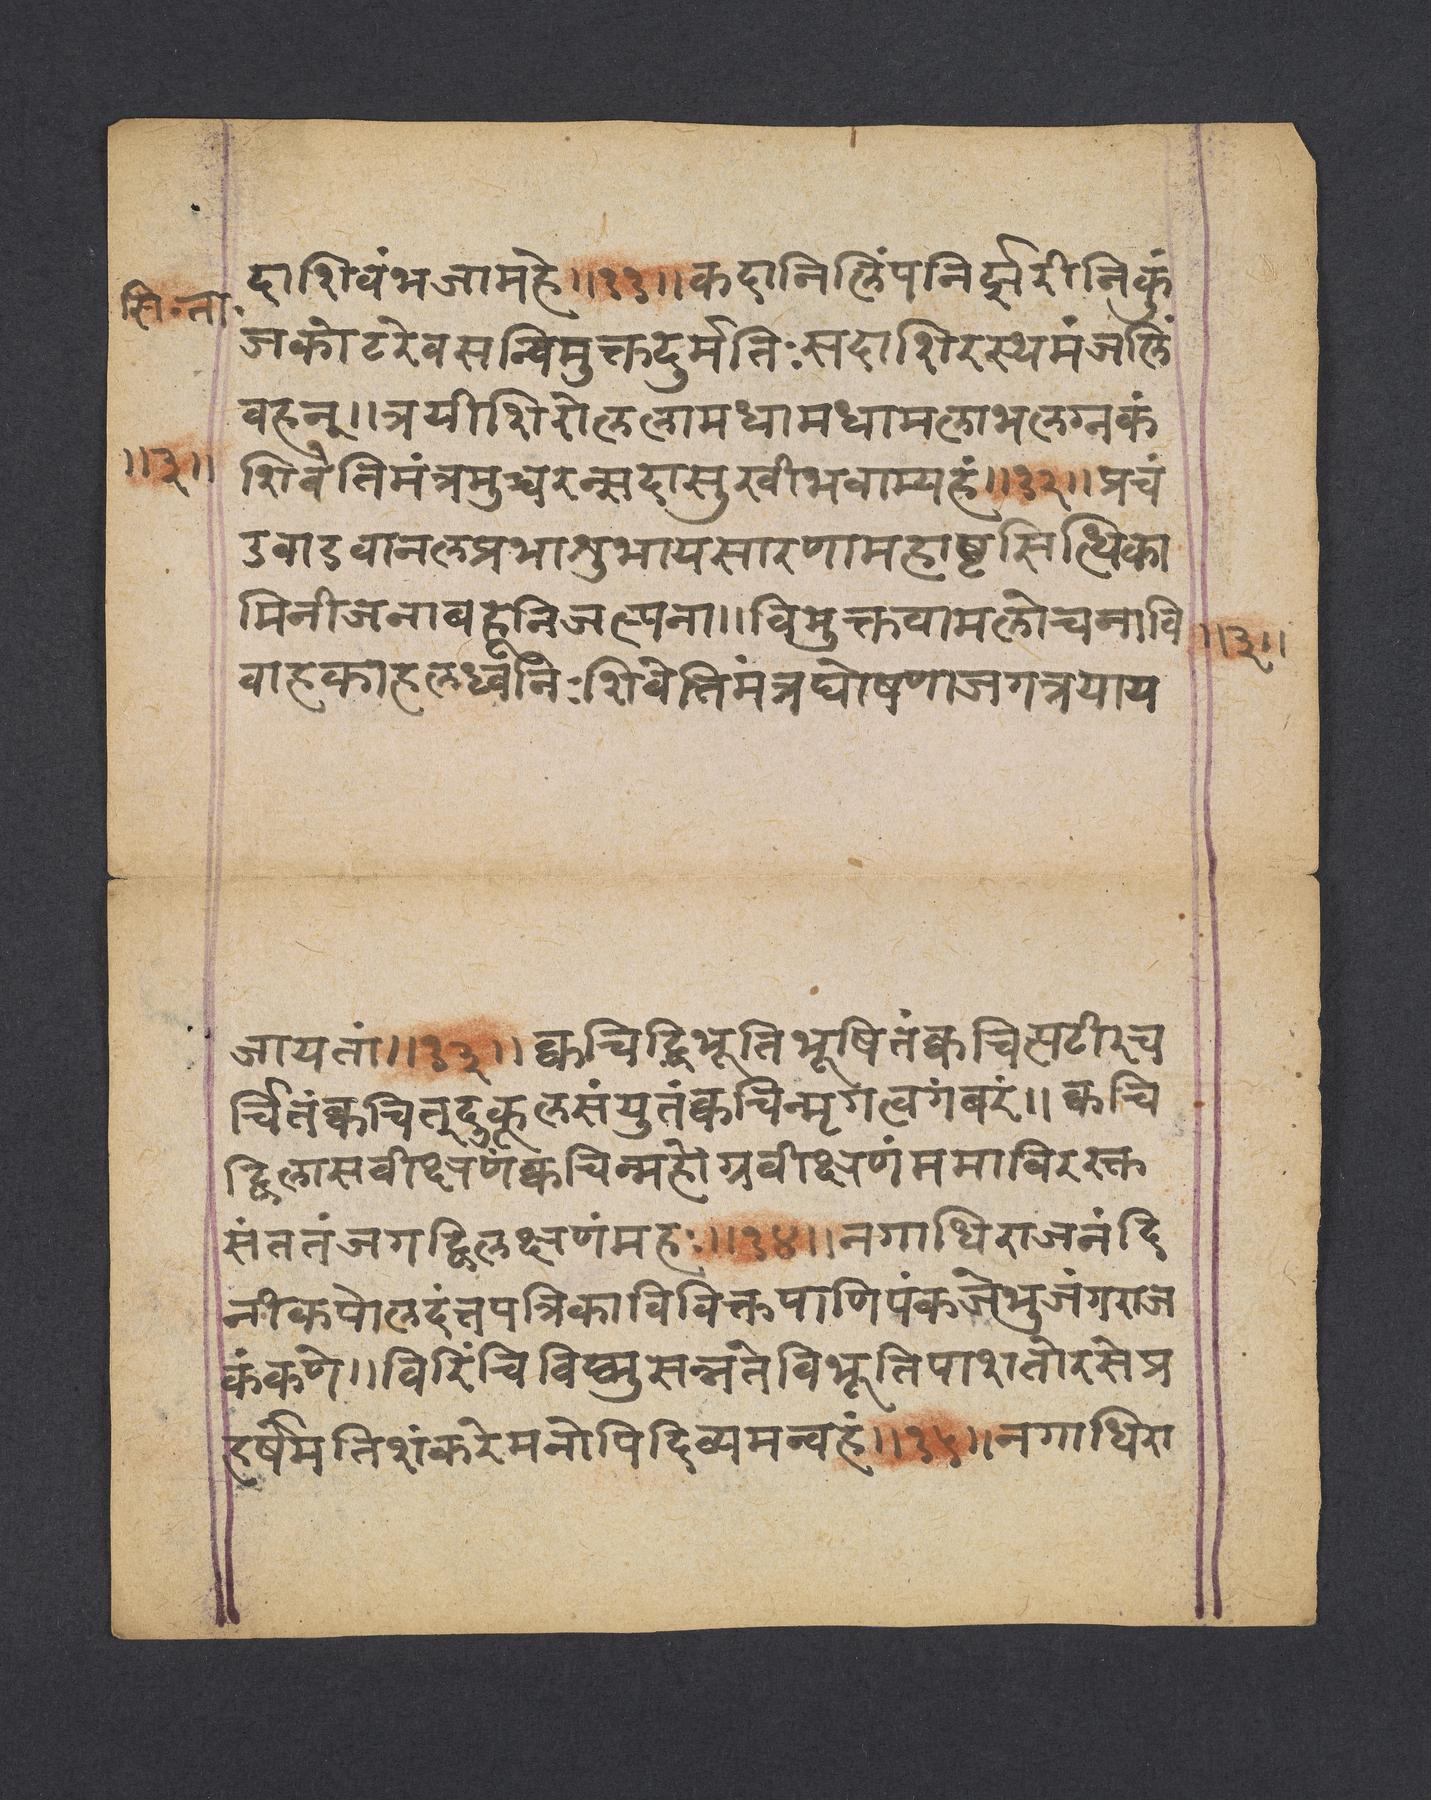 दाशिवंभजामहे॥११॥कदानिलिंपनिर्झरीनिकुं
शि॰ता॰
जकोटरेवसन्विमुक्तदुर्मतिःसदाशिरस्थमंजलिं
वहन्॥त्रयीशिरोललामधामधामलाभलग्नकं
॥३॥
शिवेतिमंत्रमुच्चरन्सदासुखीभवाम्यहं॥१२॥प्रचं
डवाडवानलप्रभाशुभायसारणामहाष्टसित्धिका
मिनीजनावहूनिजल्पना॥विमुक्तवामलोचनावि
॥३॥
वाहकाहलर्ध्वनिःशिवेतिमंत्रघोषणाजगत्रयाय
जायतां॥१३॥क्वचिद्विभूतिभूषितंक्वचित्पटीरच
र्चितंक्वचित्दुकूलसंयुतंक्वचिन्मृगत्वगंबरं॥क्वचि
द्विलासवीक्षणंक्वचिन्महोग्रवीक्षणंममाविररक्त
संततंजगद्विलक्षणंमहः॥१४॥नगाधिराजनंदि
नीकपोलदंत्तपत्रिकाविविक्तपाणिपंकजेभुजंगराज
कंकणे॥विरिंचिविष्णुसन्नतेविभूतिपाशतोरसेप्र
हर्षमतिशंकरेमनोपिदिव्यमन्वहं॥१५॥नगाधिरा